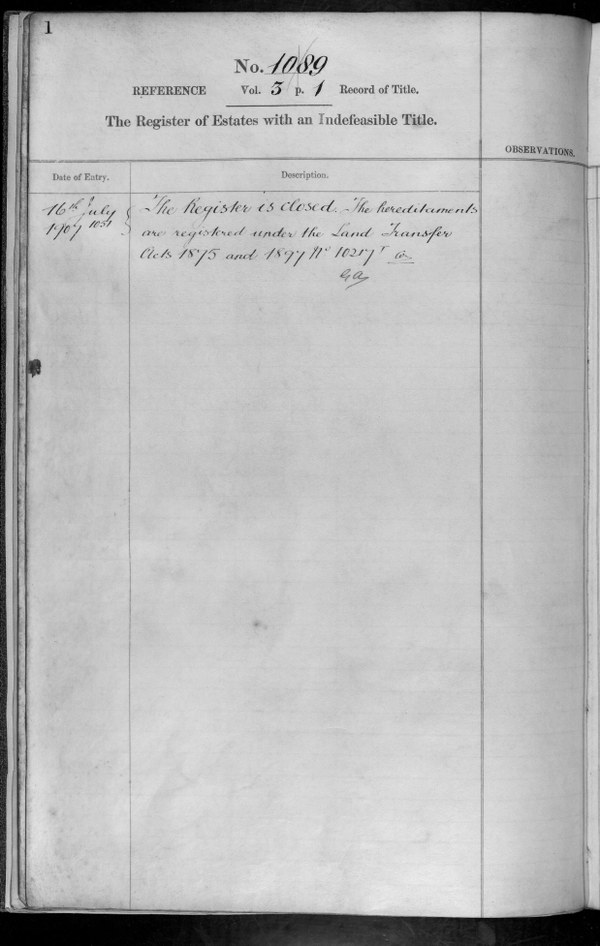 1
No. 1089
REFERENCE Vol. 3 p. 1 Record of Title.
The Register of Estates with an Indefeasible Title.
OBSERVATIONS.
Date of Entry.
Description.
16th July
1907 1051
The Register is closed. The hereditaments
are registered under the Land Transfer
Acts 1875 and 1897 No